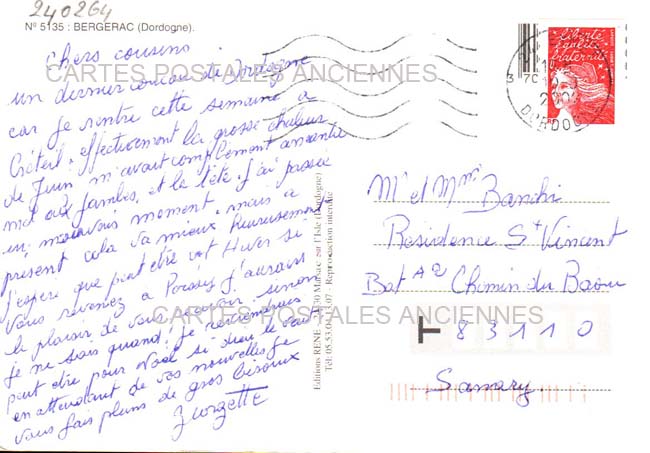 240264
Nº 5135 : BERGERAC (Dordogne).
Chers cousins
un dernier coucou de Dordogne
car je rentre cette semaine a
Créteil, effectivement la grosse chaleur
de Juin m'avait complement anéantie
mal aux jambes, et la tête j'ai passée
un mauvais moment, mais a
présent cela va mieux heureusement
J'espere que peut être cet Hiver si
vous revenez a Poissy j'aurais
le plaisir de vous revoir, sinon
je ne sais quand, je reviendrais
peut etre pour Noel si dieu le veut
en attendant de vos nouvelles je
vous fais pleins de gros bisoux
Zorzette
CARTES POSTALES ANCIENNES
CARTES POSTALES ANCIENNES
Editions RENE - 24430 Marsac sur l'Isle (Dordogne)
Tél: 05.53.04. .07 - Reproduction interdite
liberté
égalité
fraternité
DORDOGNE
Mr et Mme Banchi
Residence St Vincent
Bat A2 Chemin du Baou
T 83110
Sanary